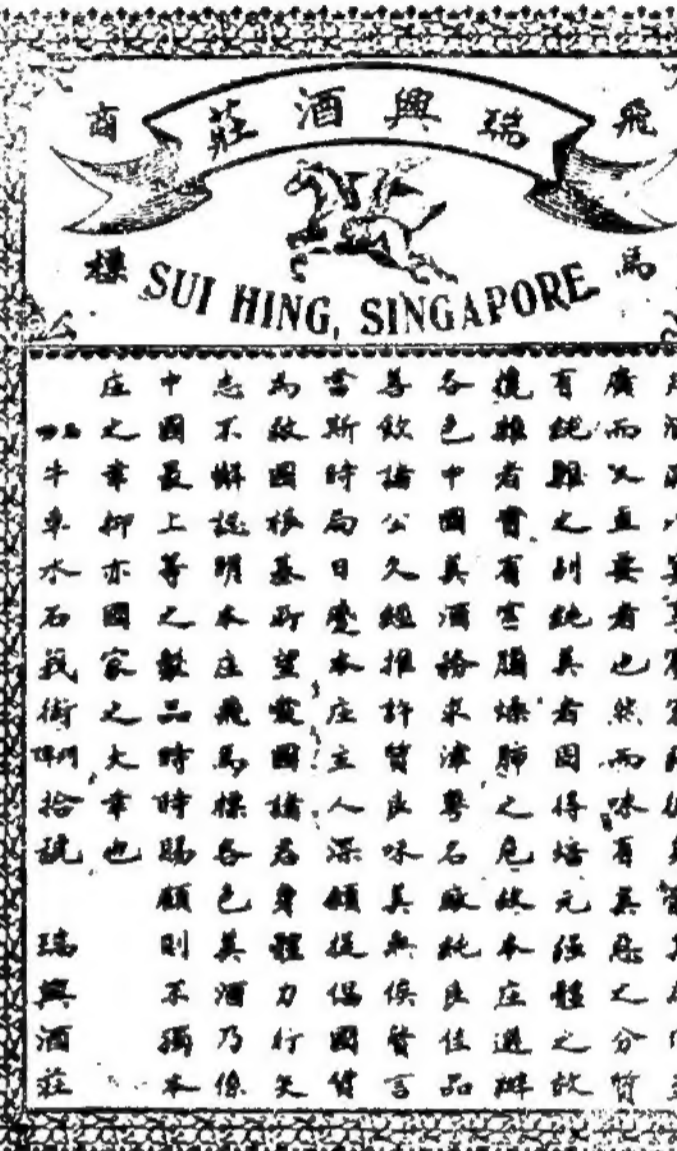 飛馬商標
瑞興酒莊
SUI HING, SINGAPORE
廣而又且要者也然而味有真之分質
有純雜之別純真者固得培元強體之效
攙雜者實有害腸燥肺之危故本庄選辦
各色中國真酒務求津粵名廠純良佳品
善飲諸公久經推許質良味美無俟贅言
當斯時局日變本庄主人深願提倡國貨
為救國根基所望愛國諸君身體力行矢
志不懈認明本庄飛馬標各色真酒乃係
中國最上等之飲品時時賜顧則不獨本
庄之幸抑亦國家之大幸也
牛車水石街拾號 瑞興酒莊